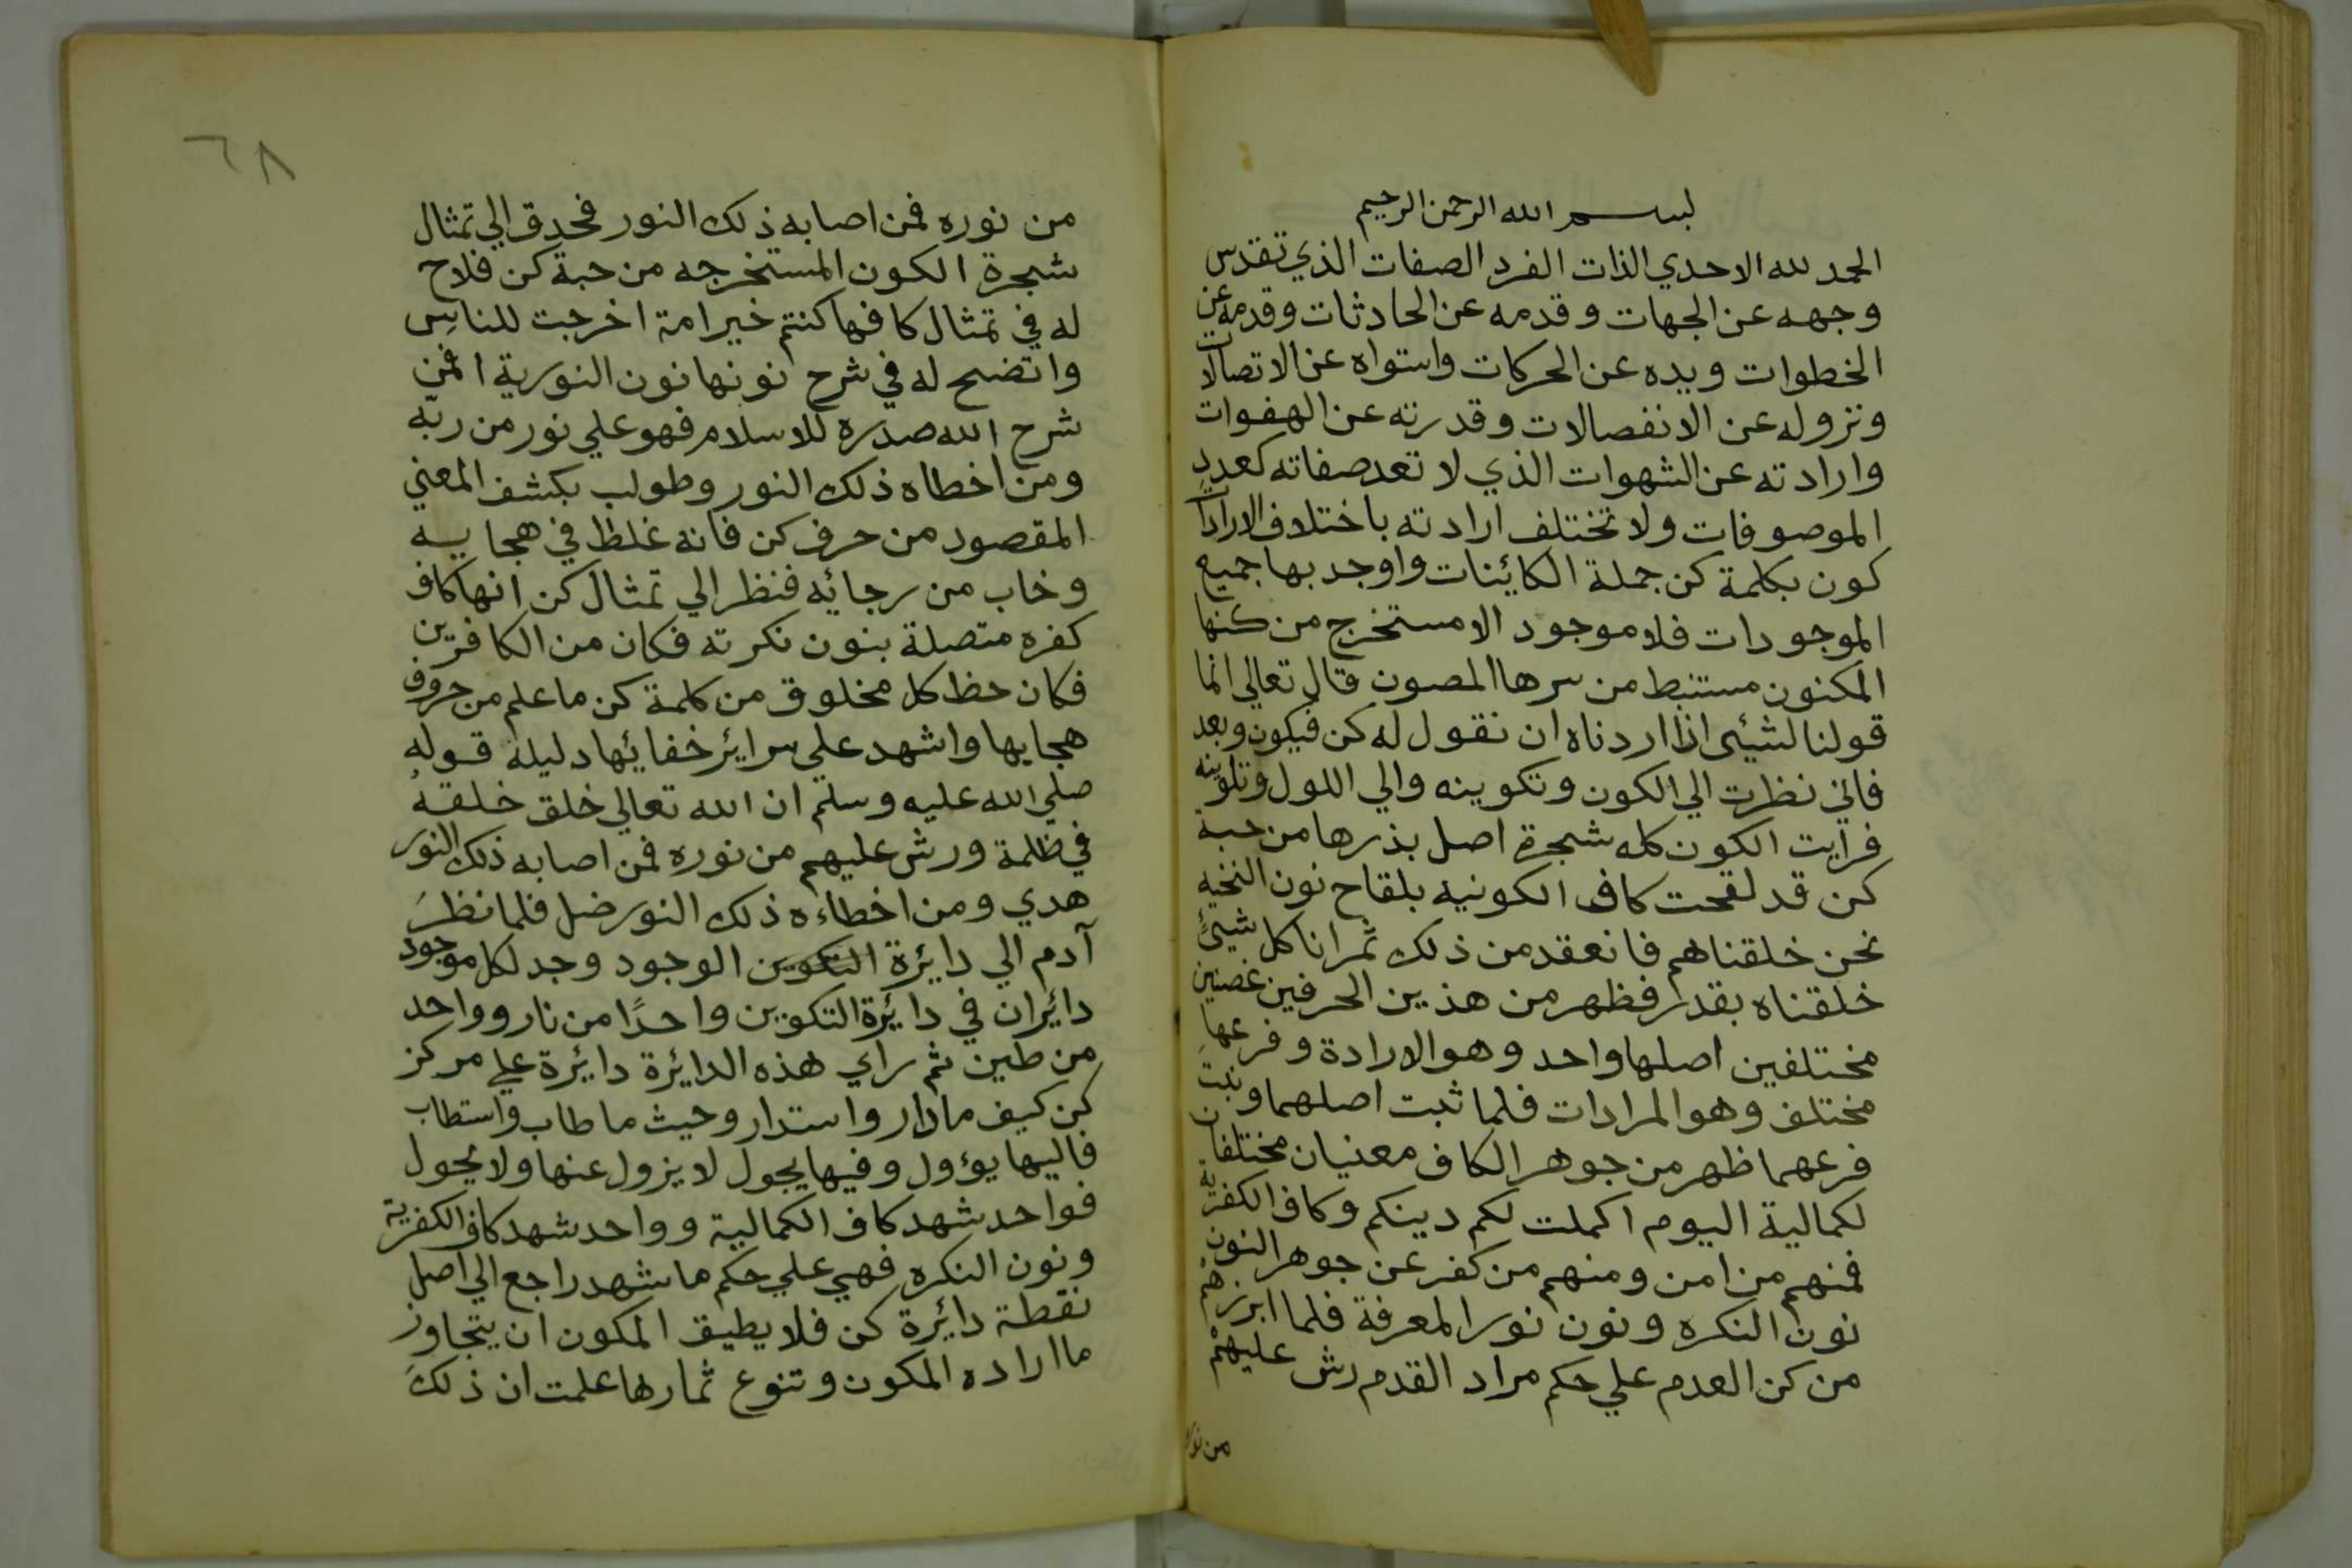 بسم الله الرحمن الرحيم
الحمد لله الاحدي الذات الفرد الصفات الذي تقدس
وجهه عن الجهات وقدمه عن الحادثات وقدمه عن
الخطوات ويده عن الحركات واستواه عن الاتصالات
ونزوله عن الانفصالات وقدرته عن الهفوات
وارادته عن الشهوات الذي لا تعد صفاته كعدد
الموصوفات ولا تختلف ارادته باختلاف الارادات
كون بكلمة كن جملة الكائينات واوجد بها جميع
الموجودات فلا موجود الا مستخرج من كنها
المكنون مستنبط من سرها المصون قال تعالي انما
قولنا لشيئ اذا اردناه ان نقول له كن فيكون وبعد
فاني نظرت الي الكون وتكوينه والي اللول وتلوينه
فرايت الكون كله شجرة اصل بذرها من حبة
كن قد لقحت كاف الكونية بلقاح نون النخيه
نحن خلقناهم فانعقد من ذلك ثمرانا كل شيئ
خلقناه بقدر فظهر من هذين الحرفين غصنين
مختلفين اصلها واحد وهو الارادة وفرعها
مختلف وهو المرادات فلما ثبت اصلهما ونبت
فرعهما ظهر من جوهر الكاف معنيان مختلفان
لكمالية اليوم اكملت لكم دينكم وكاف الكفرية
فمنهم من امن ومنهم من كفر عن جوهر النون
نون النكره ونون نور المعرفة فلما ابرزهم
من كن العدم علي حكم مراد القدم رش عليهم
من نوره
٦٨
من نوره فمن اصابه ذلك النور فحدق الي تمثال
شجرة الكون المستخرجه من حبة كن فلاح
له في تمثال كافها كنتم خير امة اخرجت للناس
واتضح له في شرح نونها نون النورية افمن
شرح الله صدره للاسلام فهو علي نور من ربّه
ومن اخطاه ذلك النور وطولب بكشف المعني
المقصود من حرف كن فانه غلظ في هجايه
وخاب من رجائيه فنظر الي تمثال كن انها كاف
كفره متصلة بنون نكرته فكان من الكافرين
فكان حظ كل مخلوق من كلمة كن ما علم من حروف
هجايها واشهد علي سرايئر خفائيها دليله قوله
صلي الله عليه وسلم ان الله تعالي خلق خلقه
في ظلمة ورش عليهم من نوره فمن اصابه ذلك النور
هدي ومن اخطاءه ذلك النور ضل فلما نظر
آدم الي دايئرة التكوين الوجود وجد لكل موجود
دايئران في دايئرة التكوين واحدًا من نار وواحد
من طين ثم راي هذه الدايئرة دايئرة علي مركز
كن كيف ما دار واستدار وحيث ما طاب واستطاب
فاليها يؤول وفيها يجول لا يزول عنها ولا يحول
فواحد شهد كاف الكمالية وواحد شهد كاف الكفرية
ونون النكره فهي علي حكم ما شهد راجع الي اصل
نقطة دايئرة كن فلا يطيق المكون ان يتجاوز
ما اراده المكون وتنوع ثمارها علمت ان ذلك